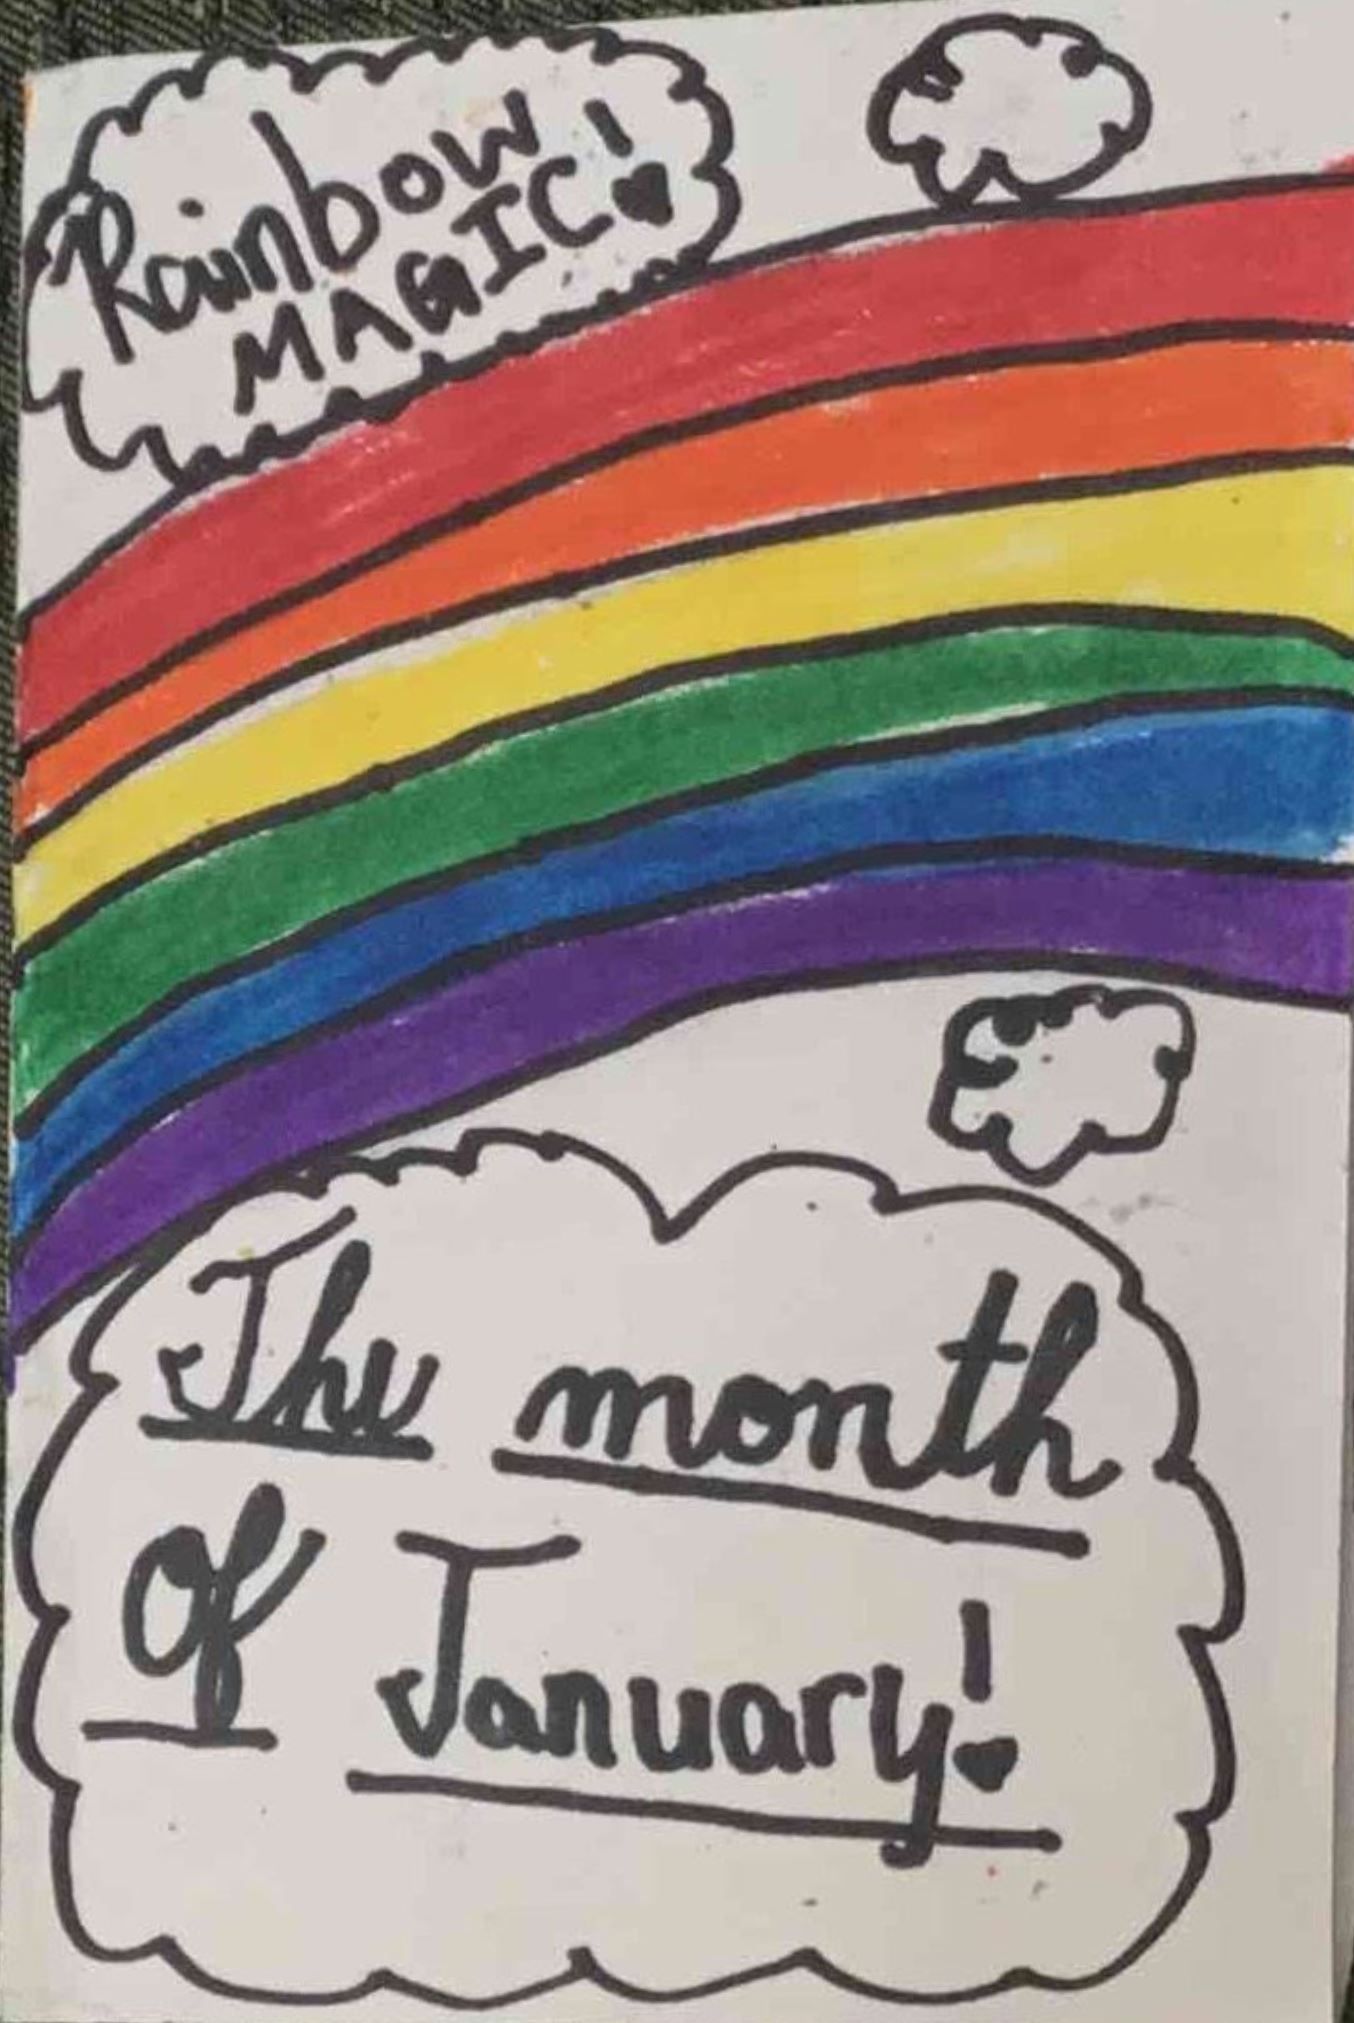 Rainbow
MAGIC!
The month
Of January!